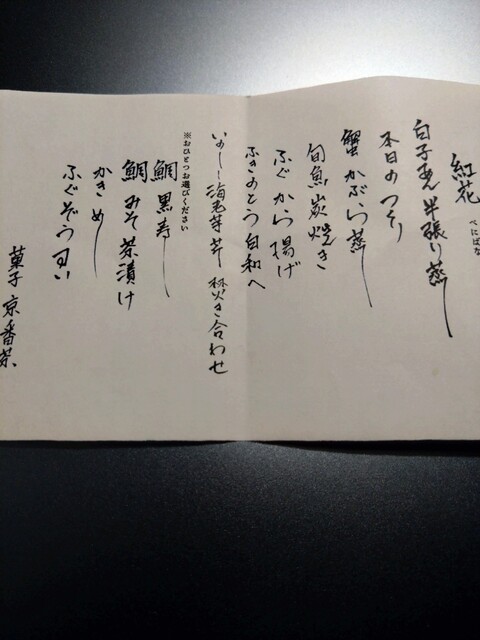 紅花
べにばな
白子まん半張り蒸し
本日のつくり
蟹 かぶら蒸し
旬魚炭焼き
ふぐ から揚げ
ふきのとう 白和へ
いのしし 海老芋 芹 炊き合わせ
※おひとつお選びください
鯛 黒寿し
鯛 みそ茶漬け
かきめし
ふぐぞうすい
菓子 京番茶